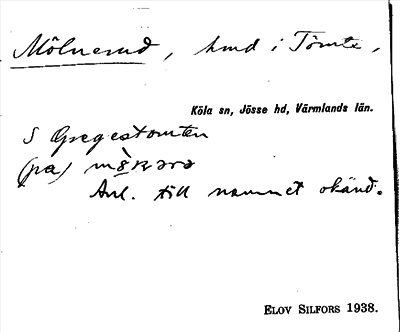 Mölnerud, hmd i Tömte,
Köla sn, Jösse hd, Värmlands län.
S Gregestomten
(pa)
Anl. till namnet okänd.
ELOV SILFORS 1938.